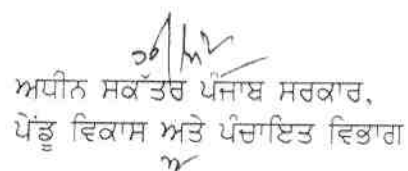 ਅਧੀਨ ਸਕੱਤਰ ਪੰਜਾਬ ਸਰਕਾਰ,
ਪੇਂਡੂ ਵਿਕਾਸ ਅਤੇ ਪੰਚਾਇਤ ਵਿਭਾਗ